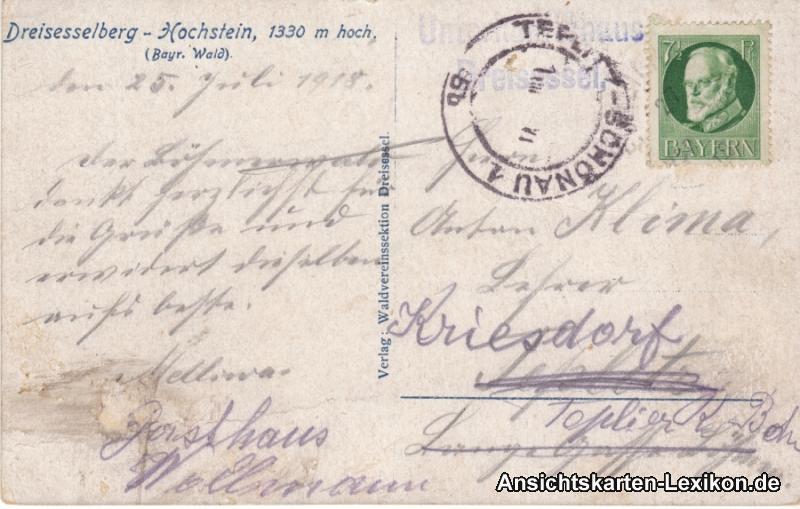 Dreisesselberg - Hochstein, 1330 m hoch.
(Bayr. Wald).
den 25. Juli 1918.
Der Böhmerwald
dankt herzlichst für
die Grüße und
erwidert dieselben
aufs beste.
Gasthaus
Wollmann
Verlag: Waldvereinssektion Dreisessel.
Unterkunftshaus
Dreisessel.
TEPLITZ-SCHÖNAU 1
7½ P
BAYERN
Herrn
Anton Klima,
Lehrer
Kriesdorf
Teplitz
Ansichtskarten-Lexikon.de